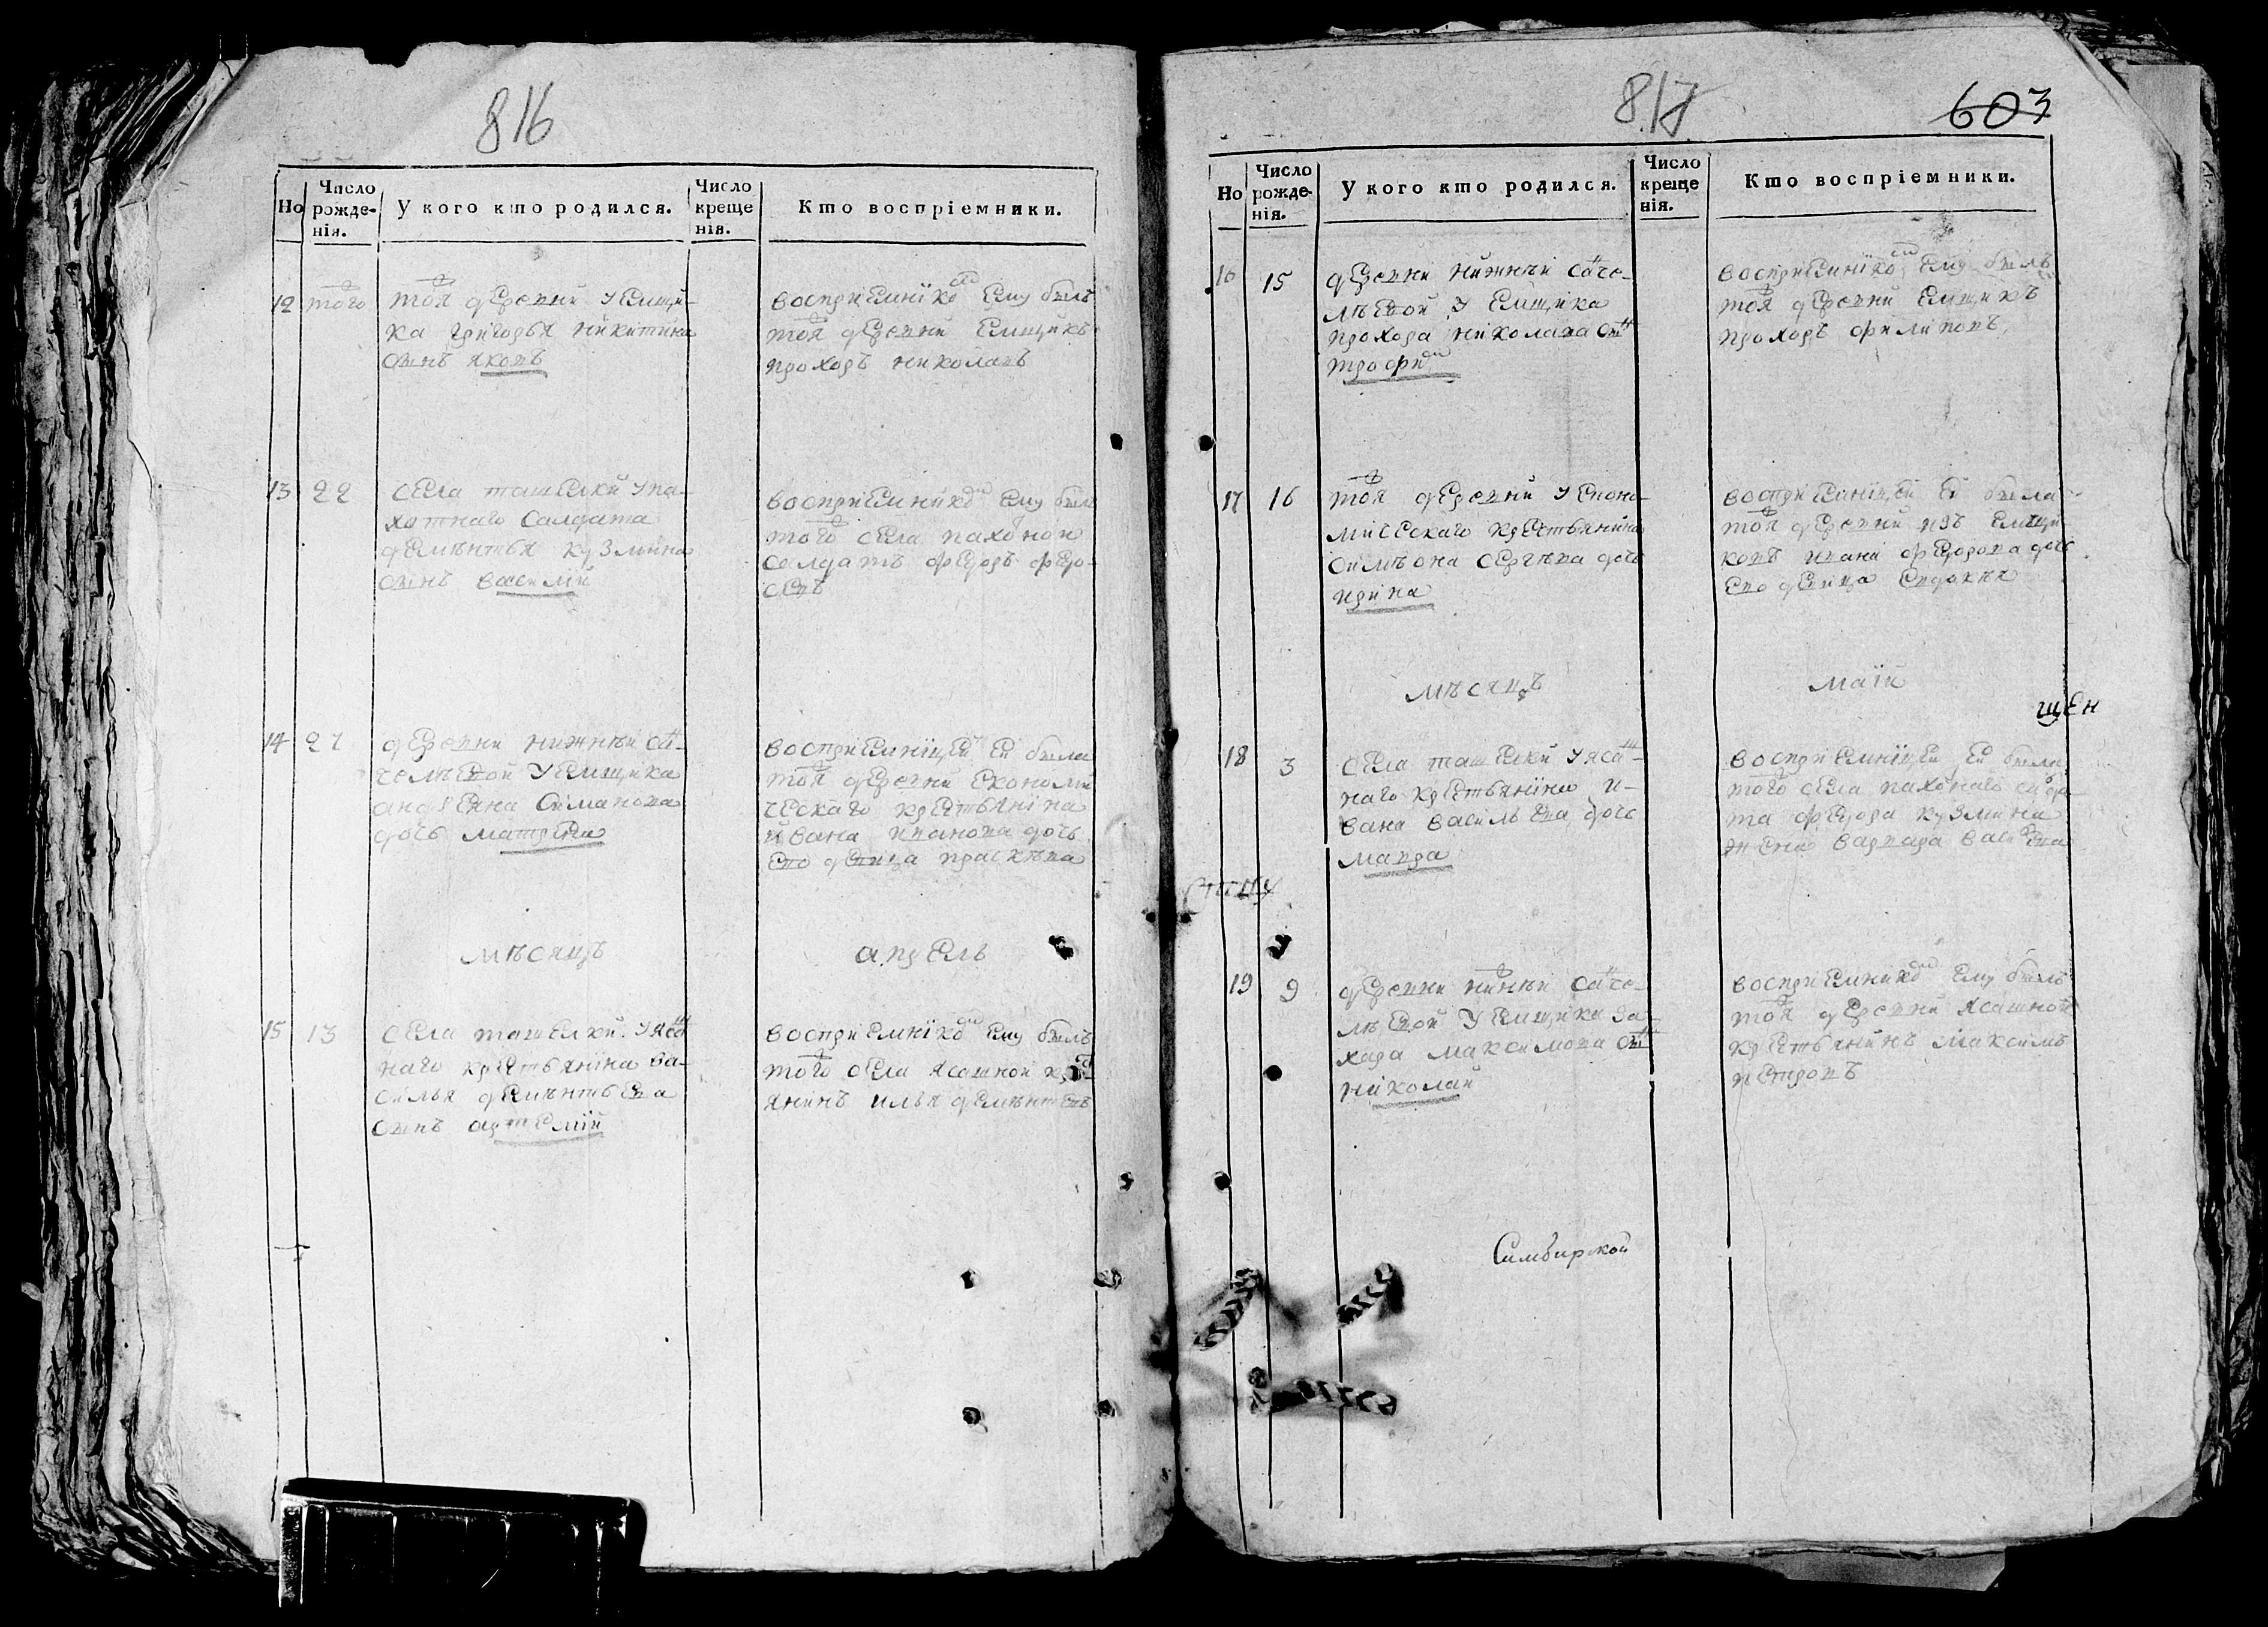 816
Но
Число рожденія.
У кого кто родился.
Число крещенія.
Кто воспріемники.
12
того
тоя деревни у емщи-
ка григорья никитина
сынъ яковъ
воспрiемнiкомъ ему былъ
тоя деревни емщикъ
прохоръ николаевъ
13
22
села ташелки у па-
хотнаго салдата
дементья кузмина
сынъ василiй
воспрiемникомъ ему былъ
того села пахоной
салдатъ федоръ федо-
севъ
14
27
деревни нижней сан-
челеевой у емщика
андрѣяна симанова
дочь матрена
воспрiемнiцей ей была
тоя деревни економи
ческаго крестьянiна
ивана иванова дочь
ево девица прасковѣа
мѣсяцъ
апрель
15
13
села ташелки у ясаш
наго крестьянiна ва-
силья дементьева
сынъ артемiй
воспрiемнiкомъ ему былъ
того села ясашной крест
янинъ илья дементьевъ
817
603
Но
Число рожденія.
У кого кто родился.
Число крещенія.
Кто воспріемники.
16
15
деревни нижнеи санче-
лѣевой у емщика
прохора николаева сынъ
трофимъ
воспрiемнiкомъ ему былъ
тоя деревни емщикъ
прохоръ филиповъ
17
16
тоя деревни у еконо
мическаго крестьянина
симѣона сергѣева дочь
ирина
воспрiемнiцей ей была
тоя деревни изъ емщи
ковъ ивана федорова дочь
ево девица евдокея
мѣсяцъ
маiй
щен
18
3
села ташелки у ясаш
наго крестьянина и-
вана васильева дочь
мавра
воспрiемнiцей ей была
того села пахонаго салда
та федора кузмина
жена варвара васильева
19
9
деревни нижнеи санче-
лѣевой у емщика за-
хара максимова сынъ
николай
воспрiемникомъ ему былъ
тоя деревни ясашной
крестьянинъ максимъ
петровъ
Симбирской